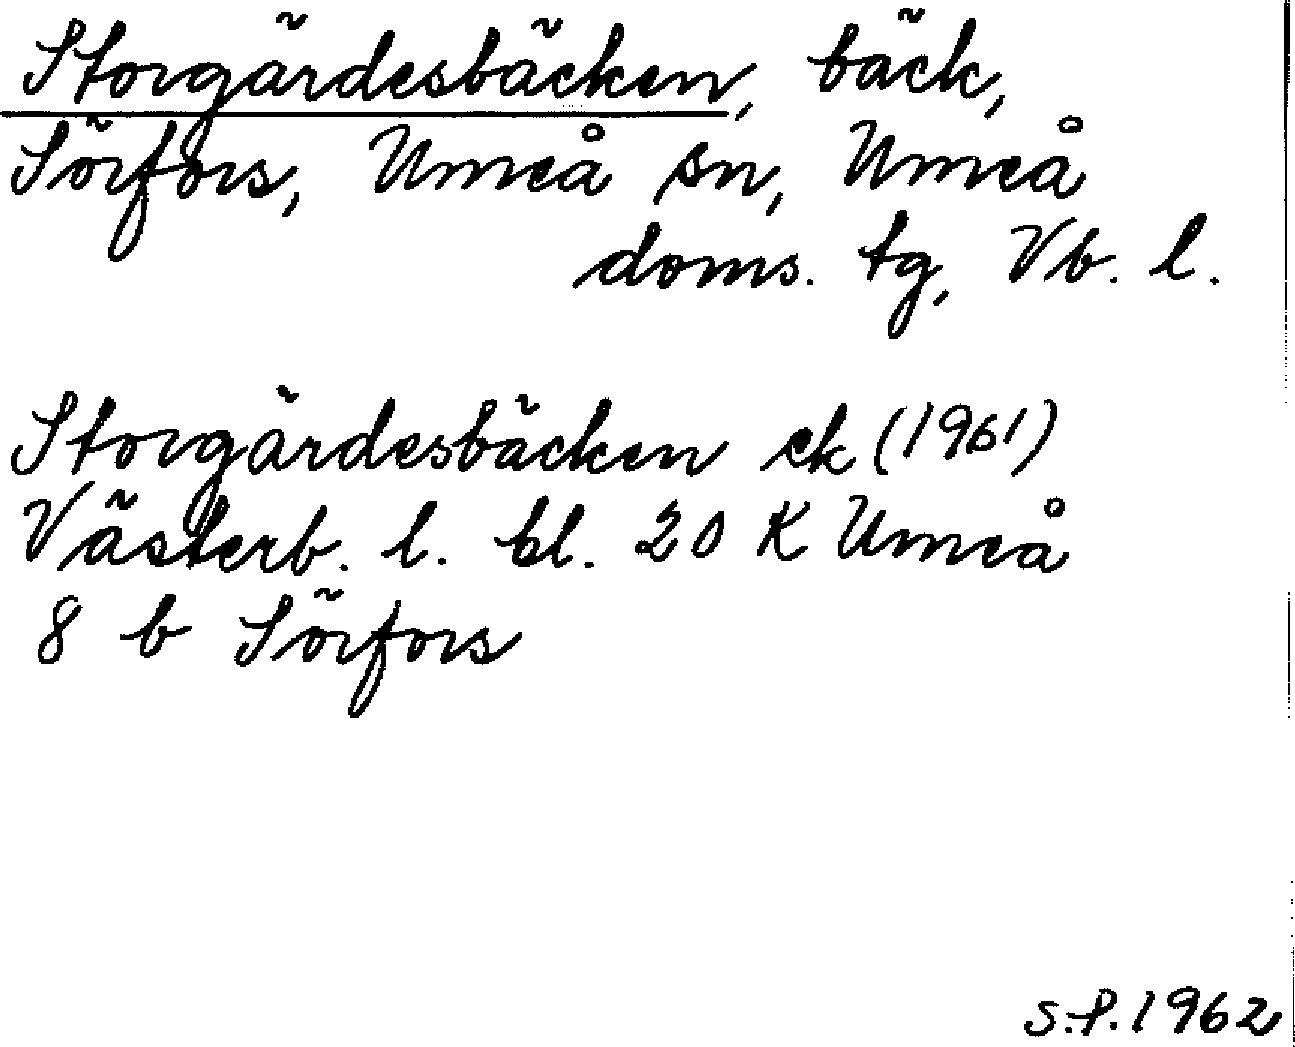 Storgärdesbäcken, bäck,
Sörfors, Umeå sn, Umeå
doms. tg, Vb. l.
Storgärdesbäcken ek (1961)
Västerb. l. bl. 20 K Umeå
8 b Sörfors
S.P. 1962